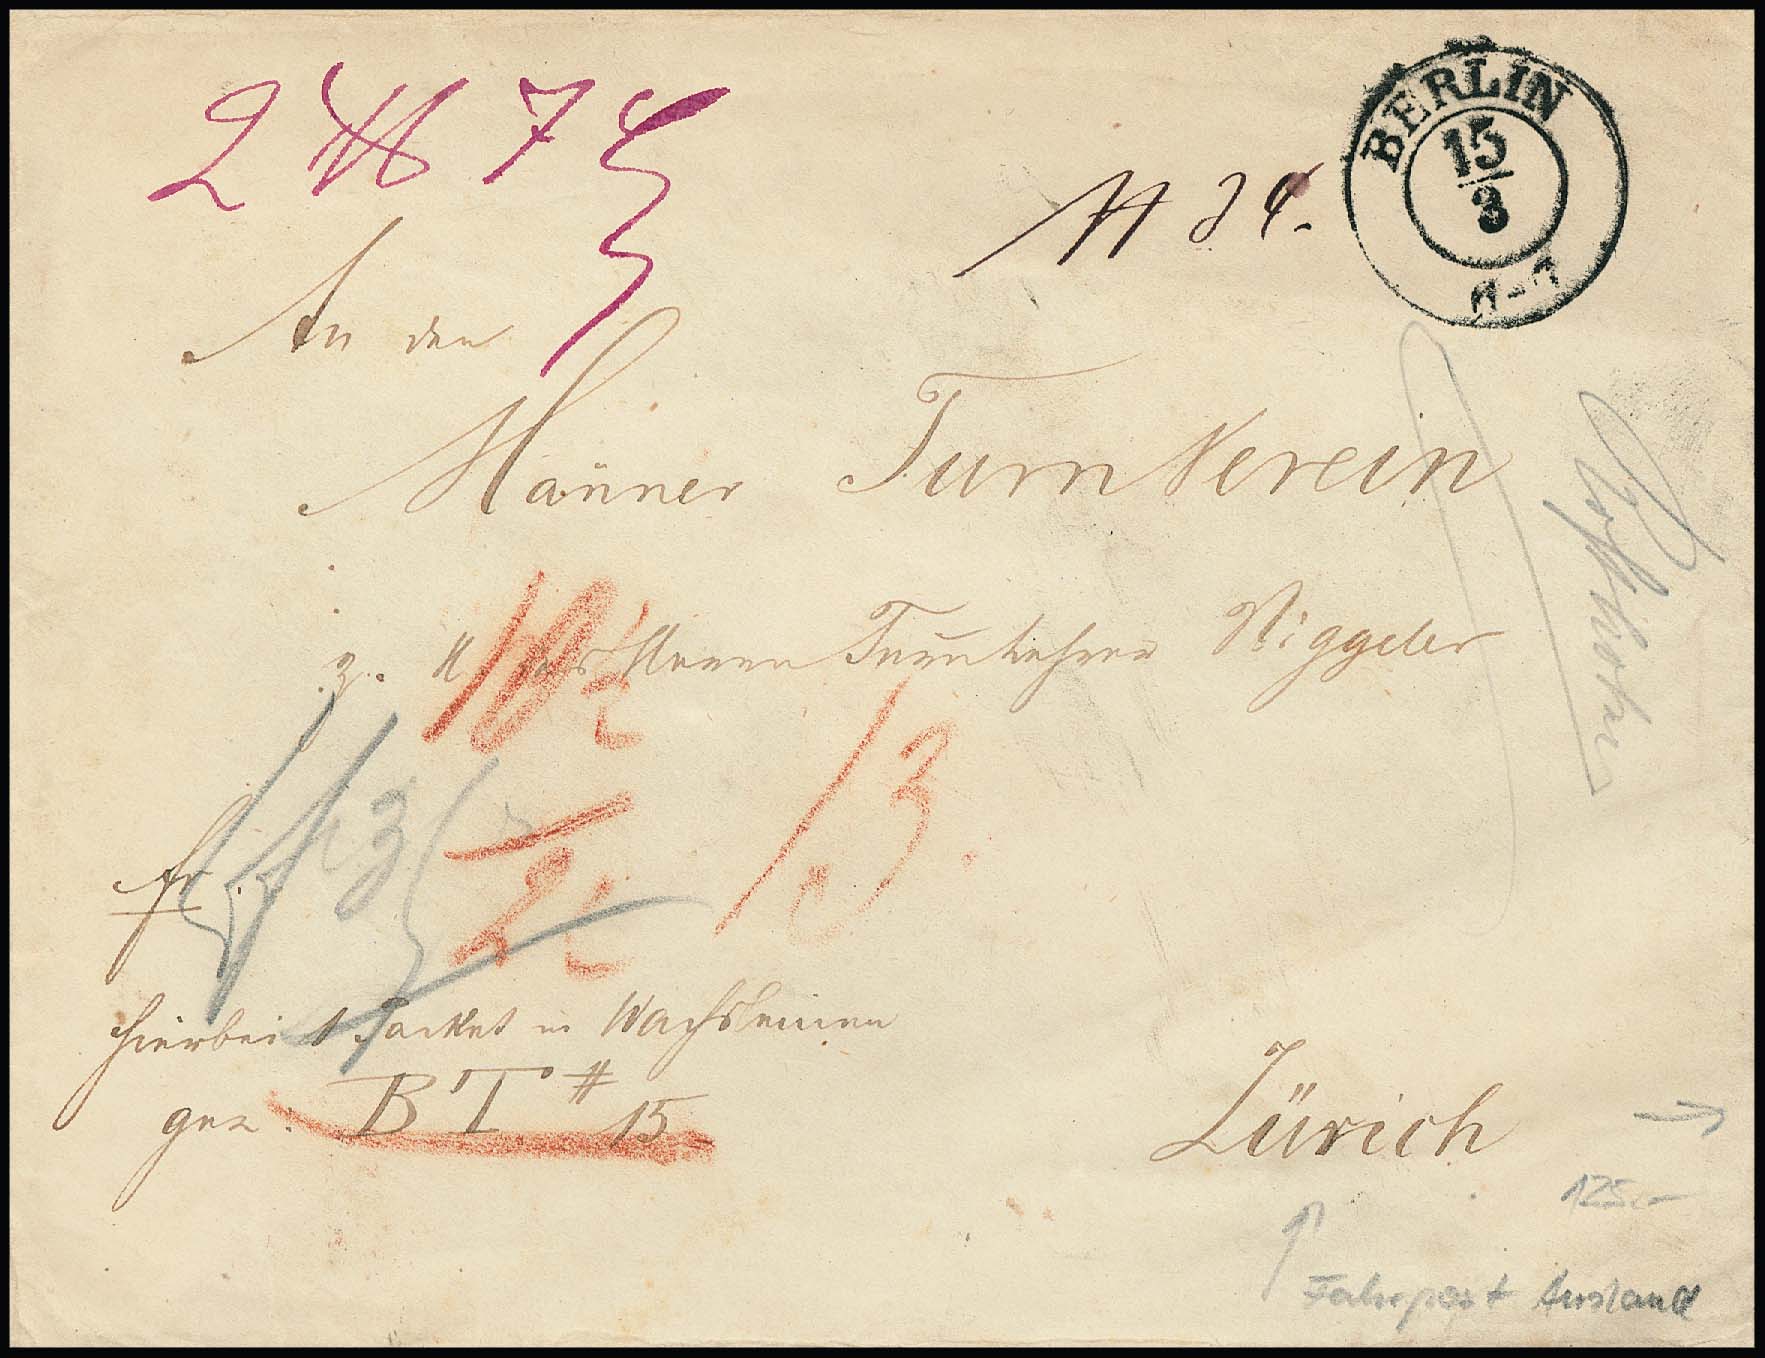 BERLIN
15/3
An den
Männer Turn Verein
z. H. des Herren Turnlehrer Niggeler
fr.
hierbei 1 Packet in Wachsleinen
gez. BT # 15
Zürich
125.-
Fahrpost Ausland